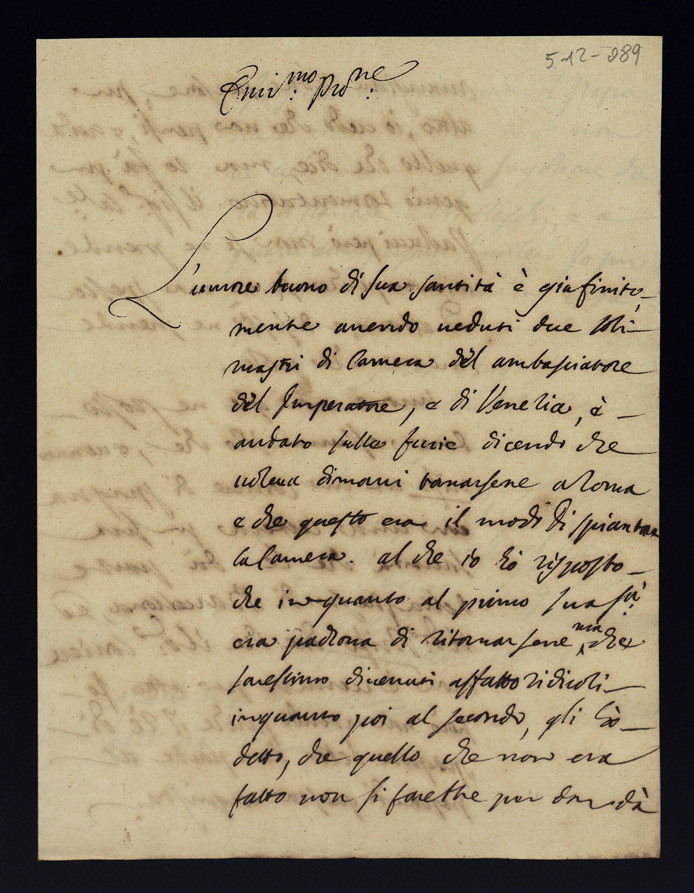 5-12-989
Em.mo Pro.ne
L'umore buono di sua santità è gia finito,
mente avendo veduti due soli
mastri di Camera del ambasciatore
del Imperatore, e di Venezia, è
andato sulle furie dicendo che
voleva dimani tornarsene a Roma
e che questo era il modo di spiantar
la Camera. al che io hò risposto
che inquanto al primo sua S.tà
era padrona di ritornarsene ma che
saressimo divenuti affatto ridicoli
inquanto poi al secondo, gli hò
detto, che quello che non era
fatto non si farebbe per